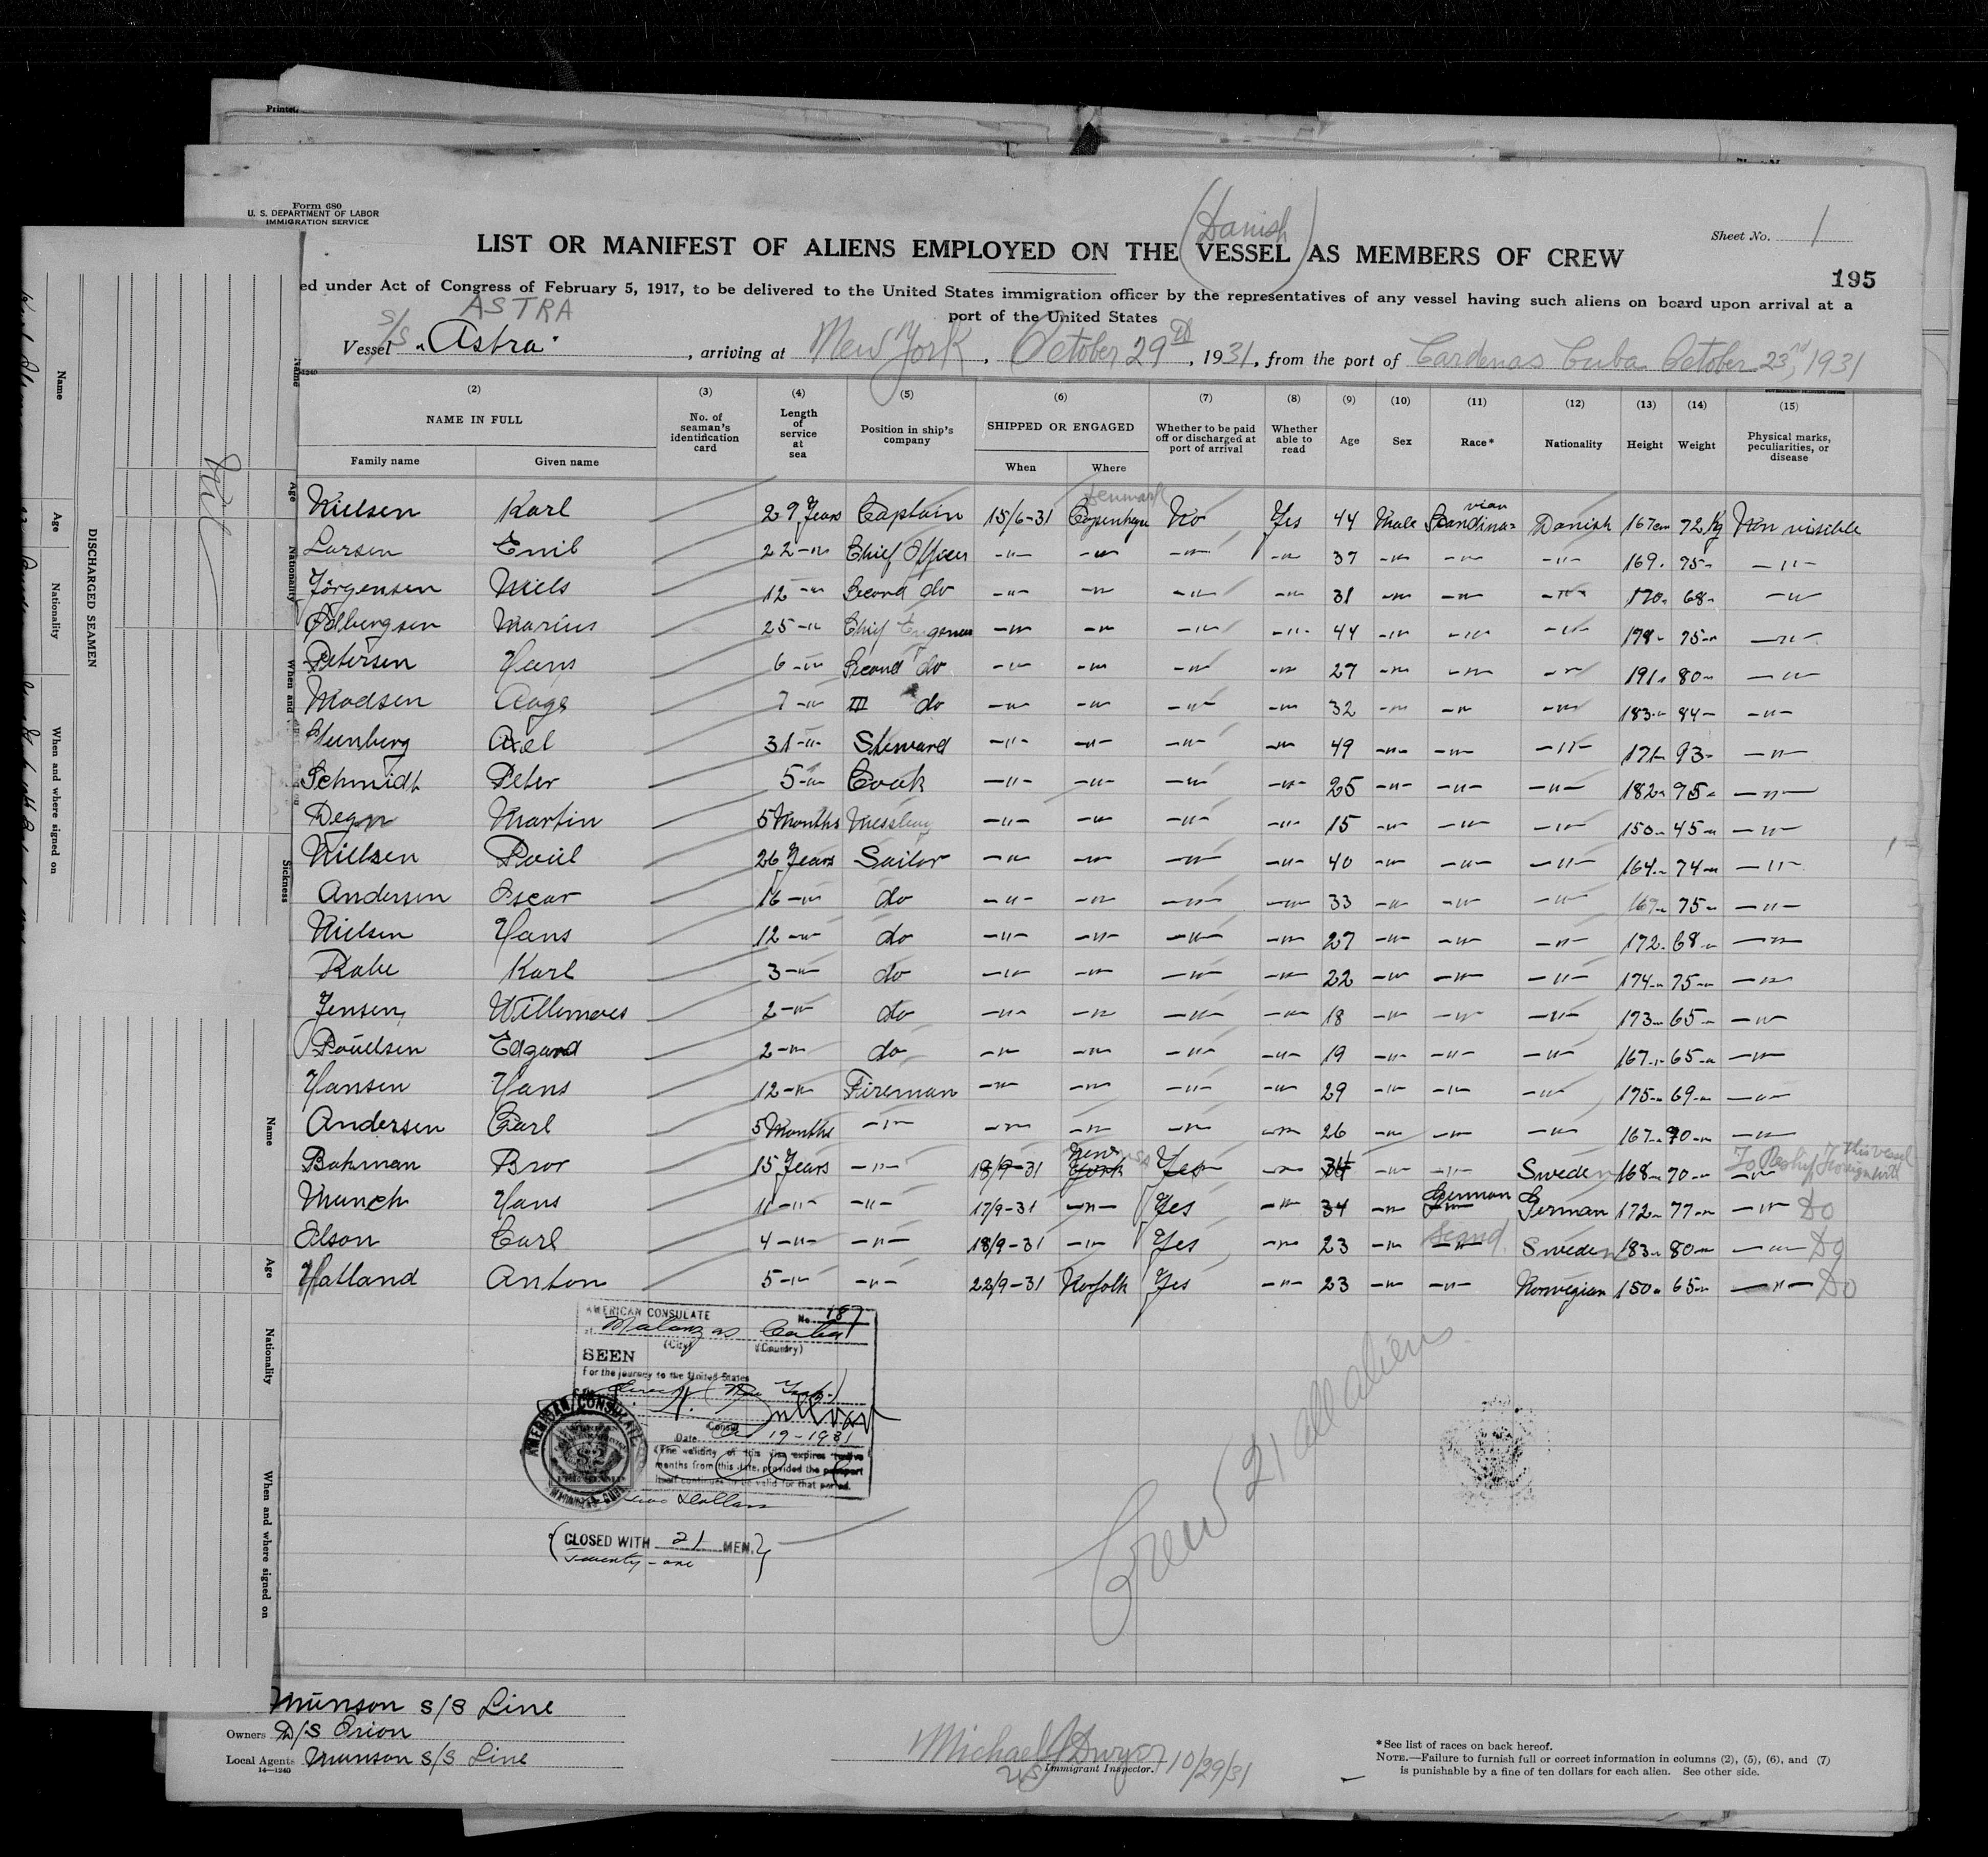 Printed
Form 680
U. S. DEPARTMENT OF LABOR
IMMIGRATION SERVICE
Sheet No. 1
(Danish)
LIST OR MANIFEST OF ALIENS EMPLOYED ON THE VESSEL AS MEMBERS OF CREW
195
ed under Act of Congress of February 5, 1917, to be delivered to the United States immigration officer by the representatives of any vessel having such aliens on board upon arrival at a
port of the United States
ASTRA
Vessel S/S "Astra", arriving at New York, October 29th, 1931, from the port of Cardenas Cuba October 23rd, 1931
(2) (3) (4) (5) (6) (7) (8) (9) (10) (11) (12) (13) (14) (15)
NAME IN FULL No. of seaman's identification card Length of service at sea Position in ship's company SHIPPED OR ENGAGED Whether to be paid off or discharged at port of arrival Whether able to read Age Sex Race* Nationality Height Weight Physical marks, peculiarities, or disease
Family name Given name When Where
Denmark
Nielsen Karl 29 Years Captain 15/6-31 Copenhagen No Yes 44 Male Scandina=vian Danish 167 cm 72 Kg Non visible
Larsen Emil 22 -"- Chief Officer -"- -"- -"- -"- 37 -"- -"- -"- 169 - 75 - -"-
Jörgensen Niels 12 -"- Second do -"- -"- -"- -"- 31 -"- -"- -"- 170 - 68 - -"-
Marius 25 -"- Chief Engeneer -"- -"- -"- -"- 44 -"- -"- -"- 178 - 75 - -"-
Petersen Hans 6 -"- Second do -"- -"- -"- -"- 27 -"- -"- -"- 191 - 80 - -"-
Madsen Aage 7 -"- III do -"- -"- -"- -"- 32 -"- -"- -"- 183 - 84 - -"-
Axel 31 -"- Steward -"- -"- -"- -"- 49 -"- -"- -"- 171 - 93 - -"-
Schmidt Peter 5 -"- Cook -"- -"- -"- -"- 25 -"- -"- -"- 182 - 95 - -"-
Degn Martin 5 Months Messboy -"- -"- -"- -"- 15 -"- -"- -"- 150 - 45 - -"-
Nielsen Poül 26 Years Sailor -"- -"- -"- -"- 40 -"- -"- -"- 164 - 74 - -"-
Andersen Oscar 16 -"- do -"- -"- -"- -"- 33 -"- -"- -"- 167 - 75 - -"-
Nielsen Hans 12 -"- do -"- -"- -"- -"- 27 -"- -"- -"- 172 - 68 - -"-
Rabe Karl 3 -"- do -"- -"- -"- -"- 22 -"- -"- -"- 174 - 75 - -"-
Jensen Willemoes 2 -"- do -"- -"- -"- -"- 18 -"- -"- -"- 173 - 65 - -"-
Poüelsen Edgard 2 -"- do -"- -"- -"- -"- 19 -"- -"- -"- 167 - 65 - -"-
Hansen Hans 12 -"- Fireman -"- -"- -"- -"- 29 -"- -"- -"- 175 - 69 - -"-
Andersen Carl 5 Months -"- -"- -"- -"- -"- 26 -"- -"- -"- 167 - 70 - -"-
Bahman Bror 15 Years -"- 18/9-31 New York USA Yes -"- 34 -"- -"- Sweden 168 - 70 - -"- To Reship Foreign with this vessel
Munch Hans 11 -"- -"- 17/9-31 -"- Yes -"- 34 -"- German German 172 - 77 - -"- Do
Olson Carl 4 -"- -"- 18/9-31 -"- Yes -"- 23 -"- Scand. Sweden 183 - 80 - -"- Do
Hatland Anton 5 -"- -"- 22/9-31 Norfolk Yes -"- 23 -"- -"- Norwegian 150 - 65 - -"- Do
AMERICAN CONSULATE No. 187
at Matanzas Cuba
(City) (Country)
SEEN
For the journey to the United States
(New York)
Consul
Date 19-1931
(The validity of this visa expires twelve
months from this date, provided the passport
itself continues to be valid for that period.
AMERICAN CONSULATE
Dollars
(CLOSED WITH 21 MEN.)
Twenty-one
Crew 21 all aliens
Munson S/S Line
Owners D/S Orion
Local Agents Munson S/S Line
14—1240
Michael J Dwyer 10/29/31
US Immigrant Inspector.
*See list of races on back hereof.
NOTE.—Failure to furnish full or correct information in columns (2), (5), (6), and (7)
is punishable by a fine of ten dollars for each alien. See other side.
DISCHARGED SEAMEN
Name
Age
Nationality
When and where signed on
Name
Age
Nationality
When and
Sickness
Name
Age
Nationality
When and where signed on